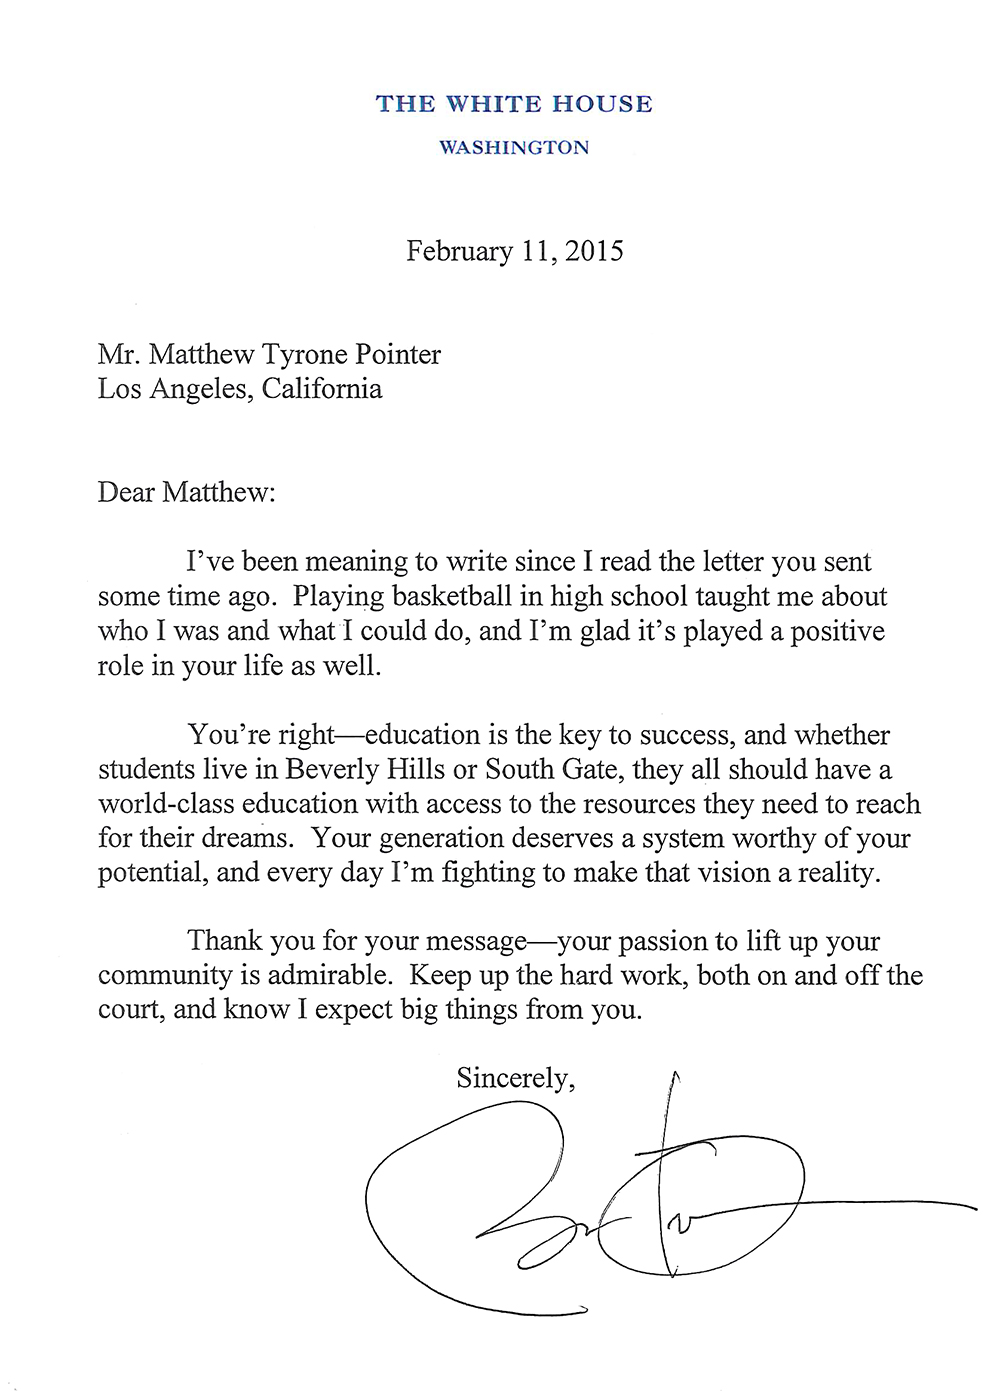 THE WHITE HOUSE
WASHINGTON
February 11, 2015
Mr. Matthew Tyrone Pointer
Los Angeles, California
Dear Matthew:
I’ve been meaning to write since I read the letter you sent
some time ago.  Playing basketball in high school taught me about
who I was and what I could do, and I’m glad it’s played a positive
role in your life as well.
You’re right—education is the key to success, and whether
students live in Beverly Hills or South Gate, they all should have a
world-class education with access to the resources they need to reach
for their dreams.  Your generation deserves a system worthy of your
potential, and every day I’m fighting to make that vision a reality.
Thank you for your message—your passion to lift up your
community is admirable.  Keep up the hard work, both on and off the
court, and know I expect big things from you.
Sincerely,